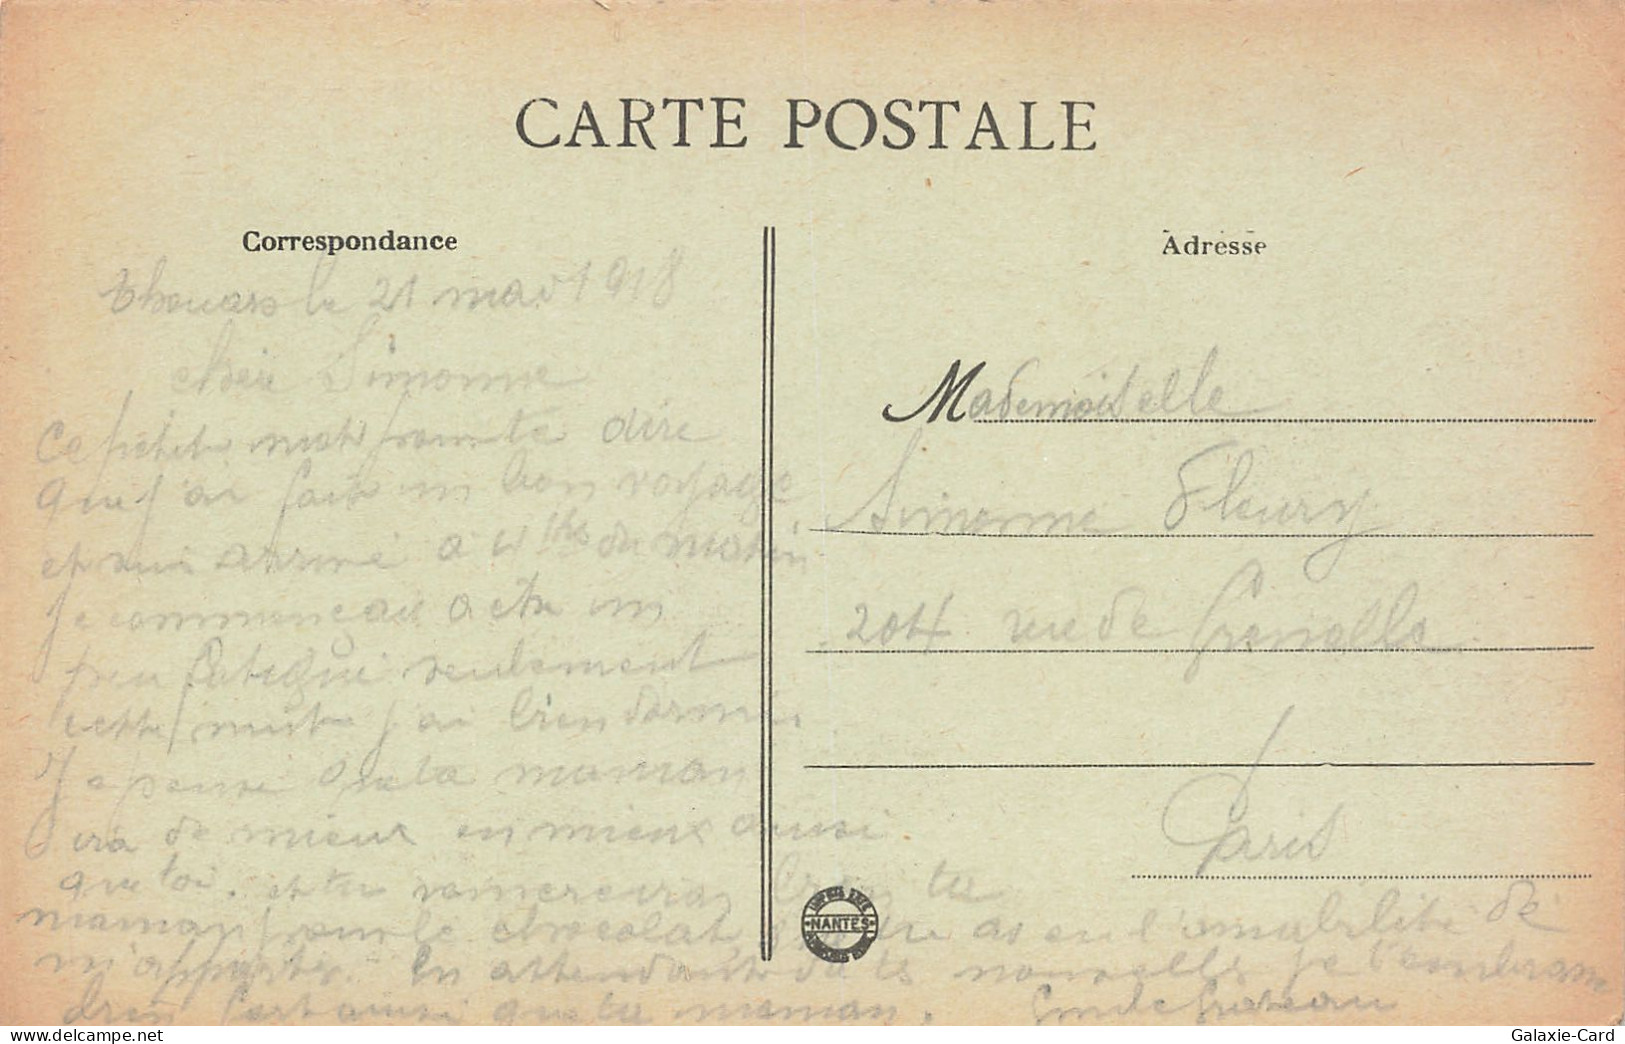 CARTE POSTALE
Correspondance
Adresse
Thouars le 21 mai 1918
cher Simonne
Ce petit mot pour te dire
que j'ai fait un bon voyage
et suis arrivé à 4 hrs du matin
je commencais a etre un
peu fatigué seulement
cette nuit j'ai bien dormi
Je pense que ta maman
ira de mieux en mieux aussi
que toi. et tu remerciras bien ta
maman pour le chocolat que tu as eu l'amabilité de
m'apporter. En attendant de tes nouvelles je t'embrasse
bien fort ainsi que ta maman. Emile
Mademoiselle
Simonne Fleury
204 rue de Grenelle
Paris
NANTES
Galaxie-Card
www.delcampe.net